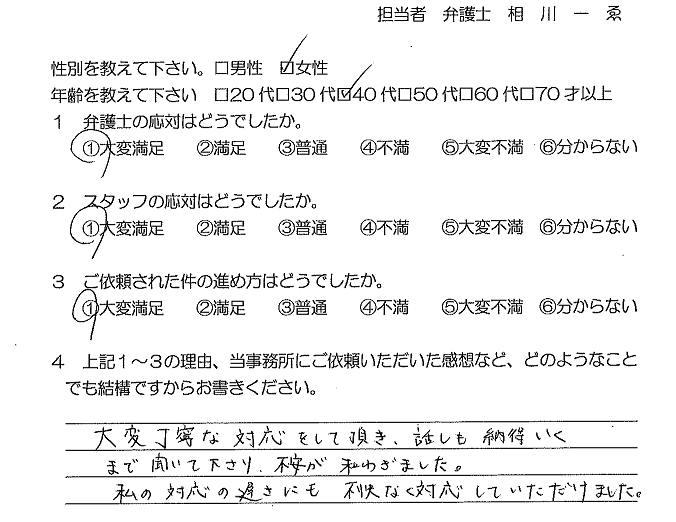 担当者 弁護士 相 川 一 ゑ
性別を教えて下さい。□男性 ☑女性
年齢を教えて下さい □20代□30代☑40代□50代□60代□70才以上
1 弁護士の応対はどうでしたか。
①大変満足 ②満足 ③普通 ④不満 ⑤大変不満 ⑥分からない
2 スタッフの応対はどうでしたか。
①大変満足 ②満足 ③普通 ④不満 ⑤大変不満 ⑥分からない
3 ご依頼された件の進め方はどうでしたか。
①大変満足 ②満足 ③普通 ④不満 ⑤大変不満 ⑥分からない
4 上記1～3の理由、当事務所にご依頼いただいた感想など、どのようなこと
でも結構ですからお書きください。
大変丁寧な対応をして頂き、話しも納得いく
まで聞いて下さり、不安が和わぎました。
私の対応の遅さにも不快なく対応していただけました。